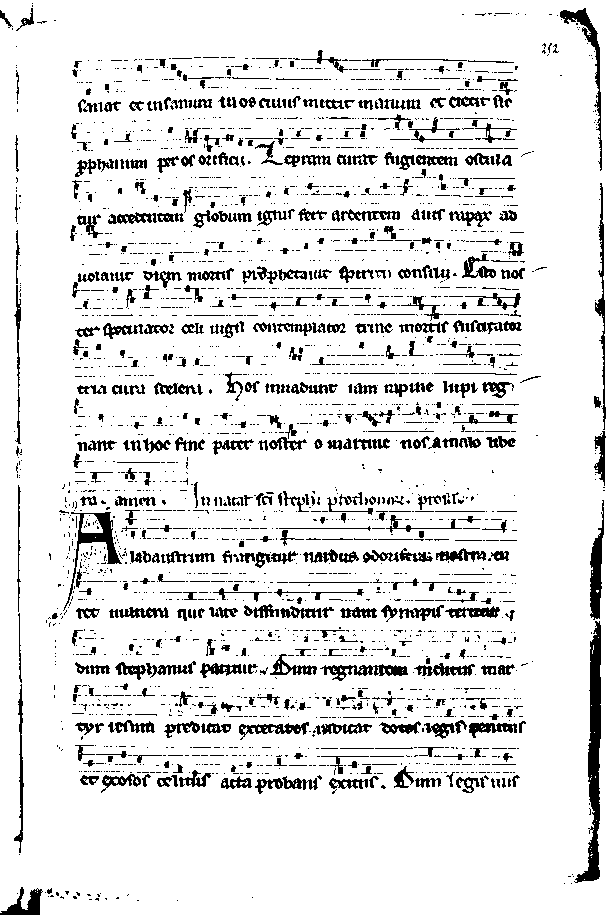 252
sanat et insanum in os cuius mittit manum et eiecit ste
pphanum per os orificii. Lepram curat fugientem oscula
tur accedentem globum ignis fert ardentem auis rapax ad
uolauit diem mortis prophetauit spiritu consilii. Esto nos
ter speculator celi uigil contemplator trine mortis suscitator
tria cura scelera. Nos inuadunt iam rapine lupi reg
nant in hoc fine pater noster o martine nos a malo libe
ra. amen. In natat sci stephi prothomar. prosa.
Alabaustrum frangitur nardus odorifera
ret uulnera que late diffunditur nam synapis teritur
dum stephanus patitur. Dum regnantem inclitus mar
tyr iesum predicat excecatos indicat dotos legis penitus
et exosos celitus acta probans exitus. Dum legis uis